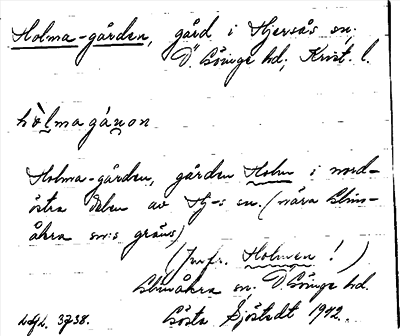 Holma-gården, gård i Hjersås sn.
Ö. Göinge hd., Krist. l.
hòlmagán̥on
Holma-gården, gården Holm i nord-
östra delen av Hj-s sn. (nära Glim-
åkra sn:s gräns)
(Jmfr. Holmen ! )
Glimåkra sn. Ö. Göinge hd.
3738. Gösta Sjöstedt 1942.